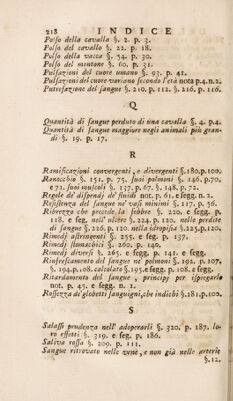 218 INDICE
Polso della cavalla §. 2. p. 3.
Polso del cavallo §. 22. p. 18.
Polso della vacca §. 34. p. 30.
Polso del montone §. 60. p. 31.
Pulsazioni del cuore umano §. 93. p. 41.
Pulsazioni del cuore variano secondo l'età nota p.4.n.2.
Putrefazione del sangue §. 210. p. 112. §. 216. p. 116.
Q
Quantità di sangue perduto di una cavalla §. 4. p.4.
Quantità di sangue maggiore negli animali più gran-
di §. 19. p. 17.
R
Ramificazioni convergenti, e divergenti §.180.p.100.
Ranocchie §. 151, p. 75. suoi polmoni §. 146. p.70.
e 71. suoi muscoli §. 137. p. 67. §. 148. p. 72.
Regole de' dispendj de' fluidi not. p. 61. e segg. n. 2.
Resistenza del sangue ne' vasi minimi §. 117. p. 56.
Ribrezzo che precede la febbre §. 220. e segg. p.
118. e seg. nell' ulcere §. 224. p. 120. nelle perdite
di sangue §. 226. p. 120. nella idropisia §.225.p.120.
Rimedj astringenti §. 255. e seg. p. 137.
Rimedj stomachici §. 260. p. 140.
Rimedj diversi §. 265. e segg. p. 141. e segg.
Rinfrescamento del sangue ne' polmoni §. 192. p. 107.
§. 194.p.108. calcolare §.195.e segg. p. 108. e segg.
Ritardamento del sangue, principj per ispiegarlo
not. p. 45. e segg. n. 1.
Rossezza de' globetti sanguigni, che indichi §.181.p.100.
S
Salassi prudenza nell' adoperarli §. 320. p. 187. lo-
ro effetti §. 319. e seg. p. 186.
Saliva rossa §. 209. p. 111.
Sangue ritrovato nelle vene, e non già nelle arterie
§.12.